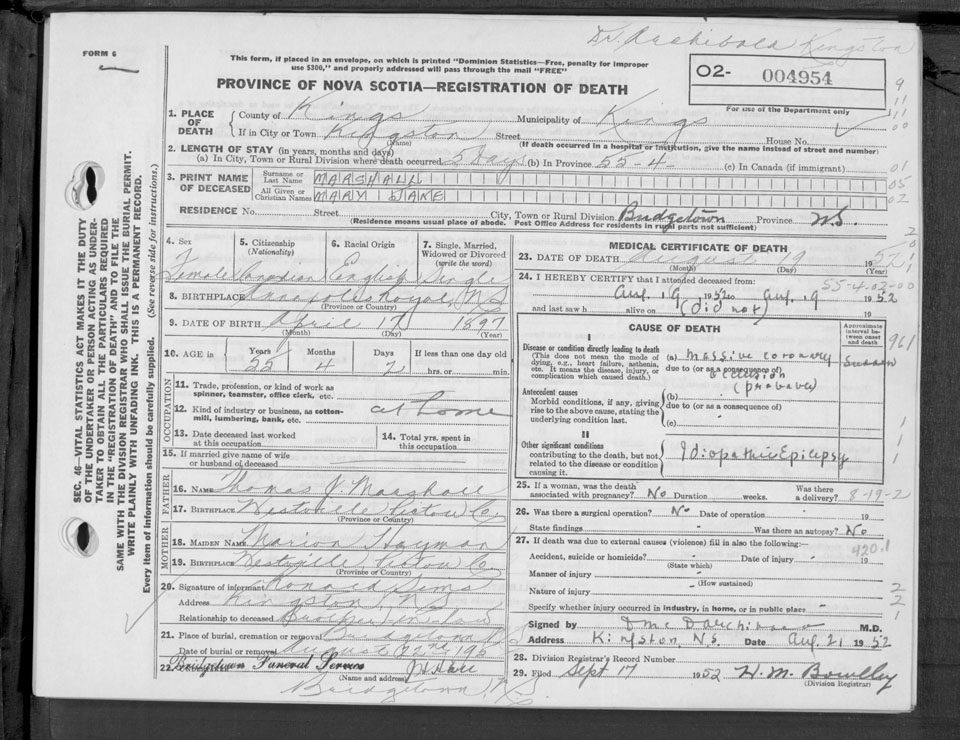 Dr. Archibald Kingston
FORM 6
This form, if placed in an envelope, on which is printed "Dominion Statistics—Free, penalty for improper
use $300," and properly addressed will pass through the mail "FREE"
O2- 004954
PROVINCE OF NOVA SCOTIA—REGISTRATION OF DEATH
For use of the Department only
1. PLACE OF DEATH
County of Kings Municipality of Kings
If in City or Town Kingston Street House No.
(Name) (If death occurred in a hospital or institution, give the name instead of street and number)
2. LENGTH OF STAY (in years, months and days)
(a) In City, Town or Rural Division where death occurred 5 Days (b) In Province 55-4- (c) In Canada (if immigrant)
3. PRINT NAME OF DECEASED
Surname or Last Name MARSHALL
All Given or Christian Names MARY JANE
RESIDENCE No. Street City, Town or Rural Division Bridgetown Province N.S.
(Residence means usual place of abode. Post Office Address for residents in rural parts not sufficient)
4. Sex
Female
5. Citizenship (Nationality)
Canadian
6. Racial Origin
English
7. Single, Married, Widowed or Divorced (write the word)
Single
8. BIRTHPLACE Annapolis Royal, N.S.
(Province or Country)
9. DATE OF BIRTH April 17 1897
(Month) (Day) (Year)
10. AGE in Years Months Days If less than one day old
55 4 2 hrs. or min.
OCCUPATION
11. Trade, profession, or kind of work as
spinner, teamster, office clerk, etc.
12. Kind of industry or business, as cotton-
mill, lumbering, bank, etc.
at home
13. Date deceased last worked
at this occupation
14. Total yrs. spent in
this occupation
15. If married give name of wife
or husband of deceased
FATHER
16. NAME Thomas J. Marshall
17. BIRTHPLACE Westville Pictou C.
(Province or Country)
MOTHER
18. MAIDEN NAME Marion Hayman
19. BIRTHPLACE Westville Pictou C.
(Province or Country)
20. Signature of informant
Address Kingston, N.S.
Relationship to deceased Brother in law
21. Place of burial, cremation or removal Bridgetown
Date of burial or removal August 22nd 195
22. Bridgetown Funeral Service
(Name and address)
Bridgetown, N.S.
MEDICAL CERTIFICATE OF DEATH
23. DATE OF DEATH August 19 1952
(Month) (Day) (Year)
55-4-02-00
24. I HEREBY CERTIFY that I attended deceased from
Aug. 19 1952 to Aug. 19 1952
and last saw h alive on (did not) 19
CAUSE OF DEATH
Approximate interval between onset and death
I
Disease or condition directly leading to death
(This does not mean the mode of
dying, e.g., heart failure, asthenia,
etc. It means the disease, injury, or
complication which caused death.)
(a) massive coronary
due to (or as a consequence of)
occlusion
(probable)
Sudden
961
Antecedent causes
Morbid conditions, if any, giving
rise to the above cause, stating the
underlying condition last.
(b)
due to (or as a consequence of)
(c)
II
Other significant conditions
contributing to the death, but not
related to the disease or condition
causing it.
Idiopathic Epilepsy
25. If a woman, was the death
associated with pregnancy? No Duration weeks. Was there
a delivery?
8-19-2
26. Was there a surgical operation? No Date of operation 19
State findings Was there an autopsy? No
27. If death was due to external causes (violence) fill in also the following:—
420.1
Accident, suicide or homicide? Date of injury 19
(State which)
Manner of injury
(How sustained)
Nature of injury
Specify whether injury occurred in industry, in home, or in public place
Signed by D Mc D Archibald M.D.
Address Kingston, N.S. Date Aug. 21 1952
28. Division Registrar's Record Number
29. Filed Sept 17 1952
(Division Registrar)
SEC. 46—VITAL STATISTICS ACT MAKES IT THE DUTY
OF THE UNDERTAKER OR PERSON ACTING AS UNDER-
TAKER TO OBTAIN ALL THE PARTICULARS REQUIRED
IN THE "REGISTRATION OF DEATH" AND TO FILE THE
SAME WITH THE DIVISION REGISTRAR WHO SHALL ISSUE THE BURIAL PERMIT.
WRITE PLAINLY WITH UNFADING INK. THIS IS A PERMANENT RECORD.
Every item of information should be carefully supplied. (See reverse side for instructions.)